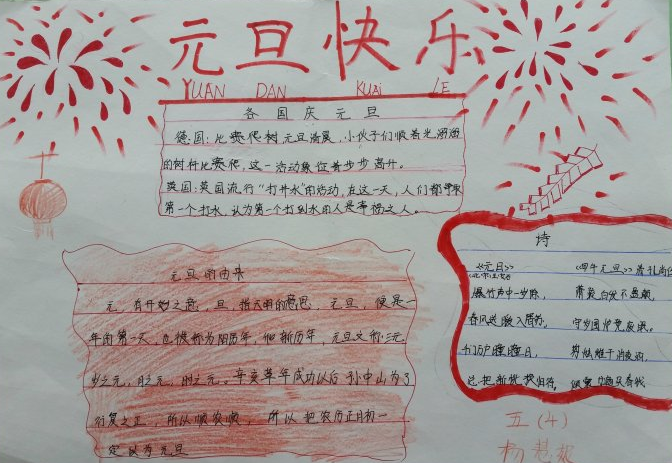 元旦快乐
YUAN DAN KUAi LE
各国庆元旦
德国:比赛爬树元旦清晨,小伙子们顺着光溜溜
的树杆比赛爬,这一活动象征着步步高升。
英国:英国流行"打井水"的活动,在这一天,人们都争取
第一个打水,认为第一个打到水的人是幸福之人。
元旦的由来
元,有开始之意,旦,指天明的意思,元旦,便是一
年的第一天,也被称为阳历年,新历年,元旦又称三元
岁之元,月之元,时之元。辛亥革命成功以后孙中山为了
行夏之正,所以顺农时,所以把农历正月初一
定
为元旦
诗
《元日》
爆竹声中一岁除,
春风送暖入屠苏,
门户曈曈日,
把新桃换旧符。
《四年元旦》
萧疏白发不盈颠,
守岁围炉竟废眠。
剪烛
五(4)
杨